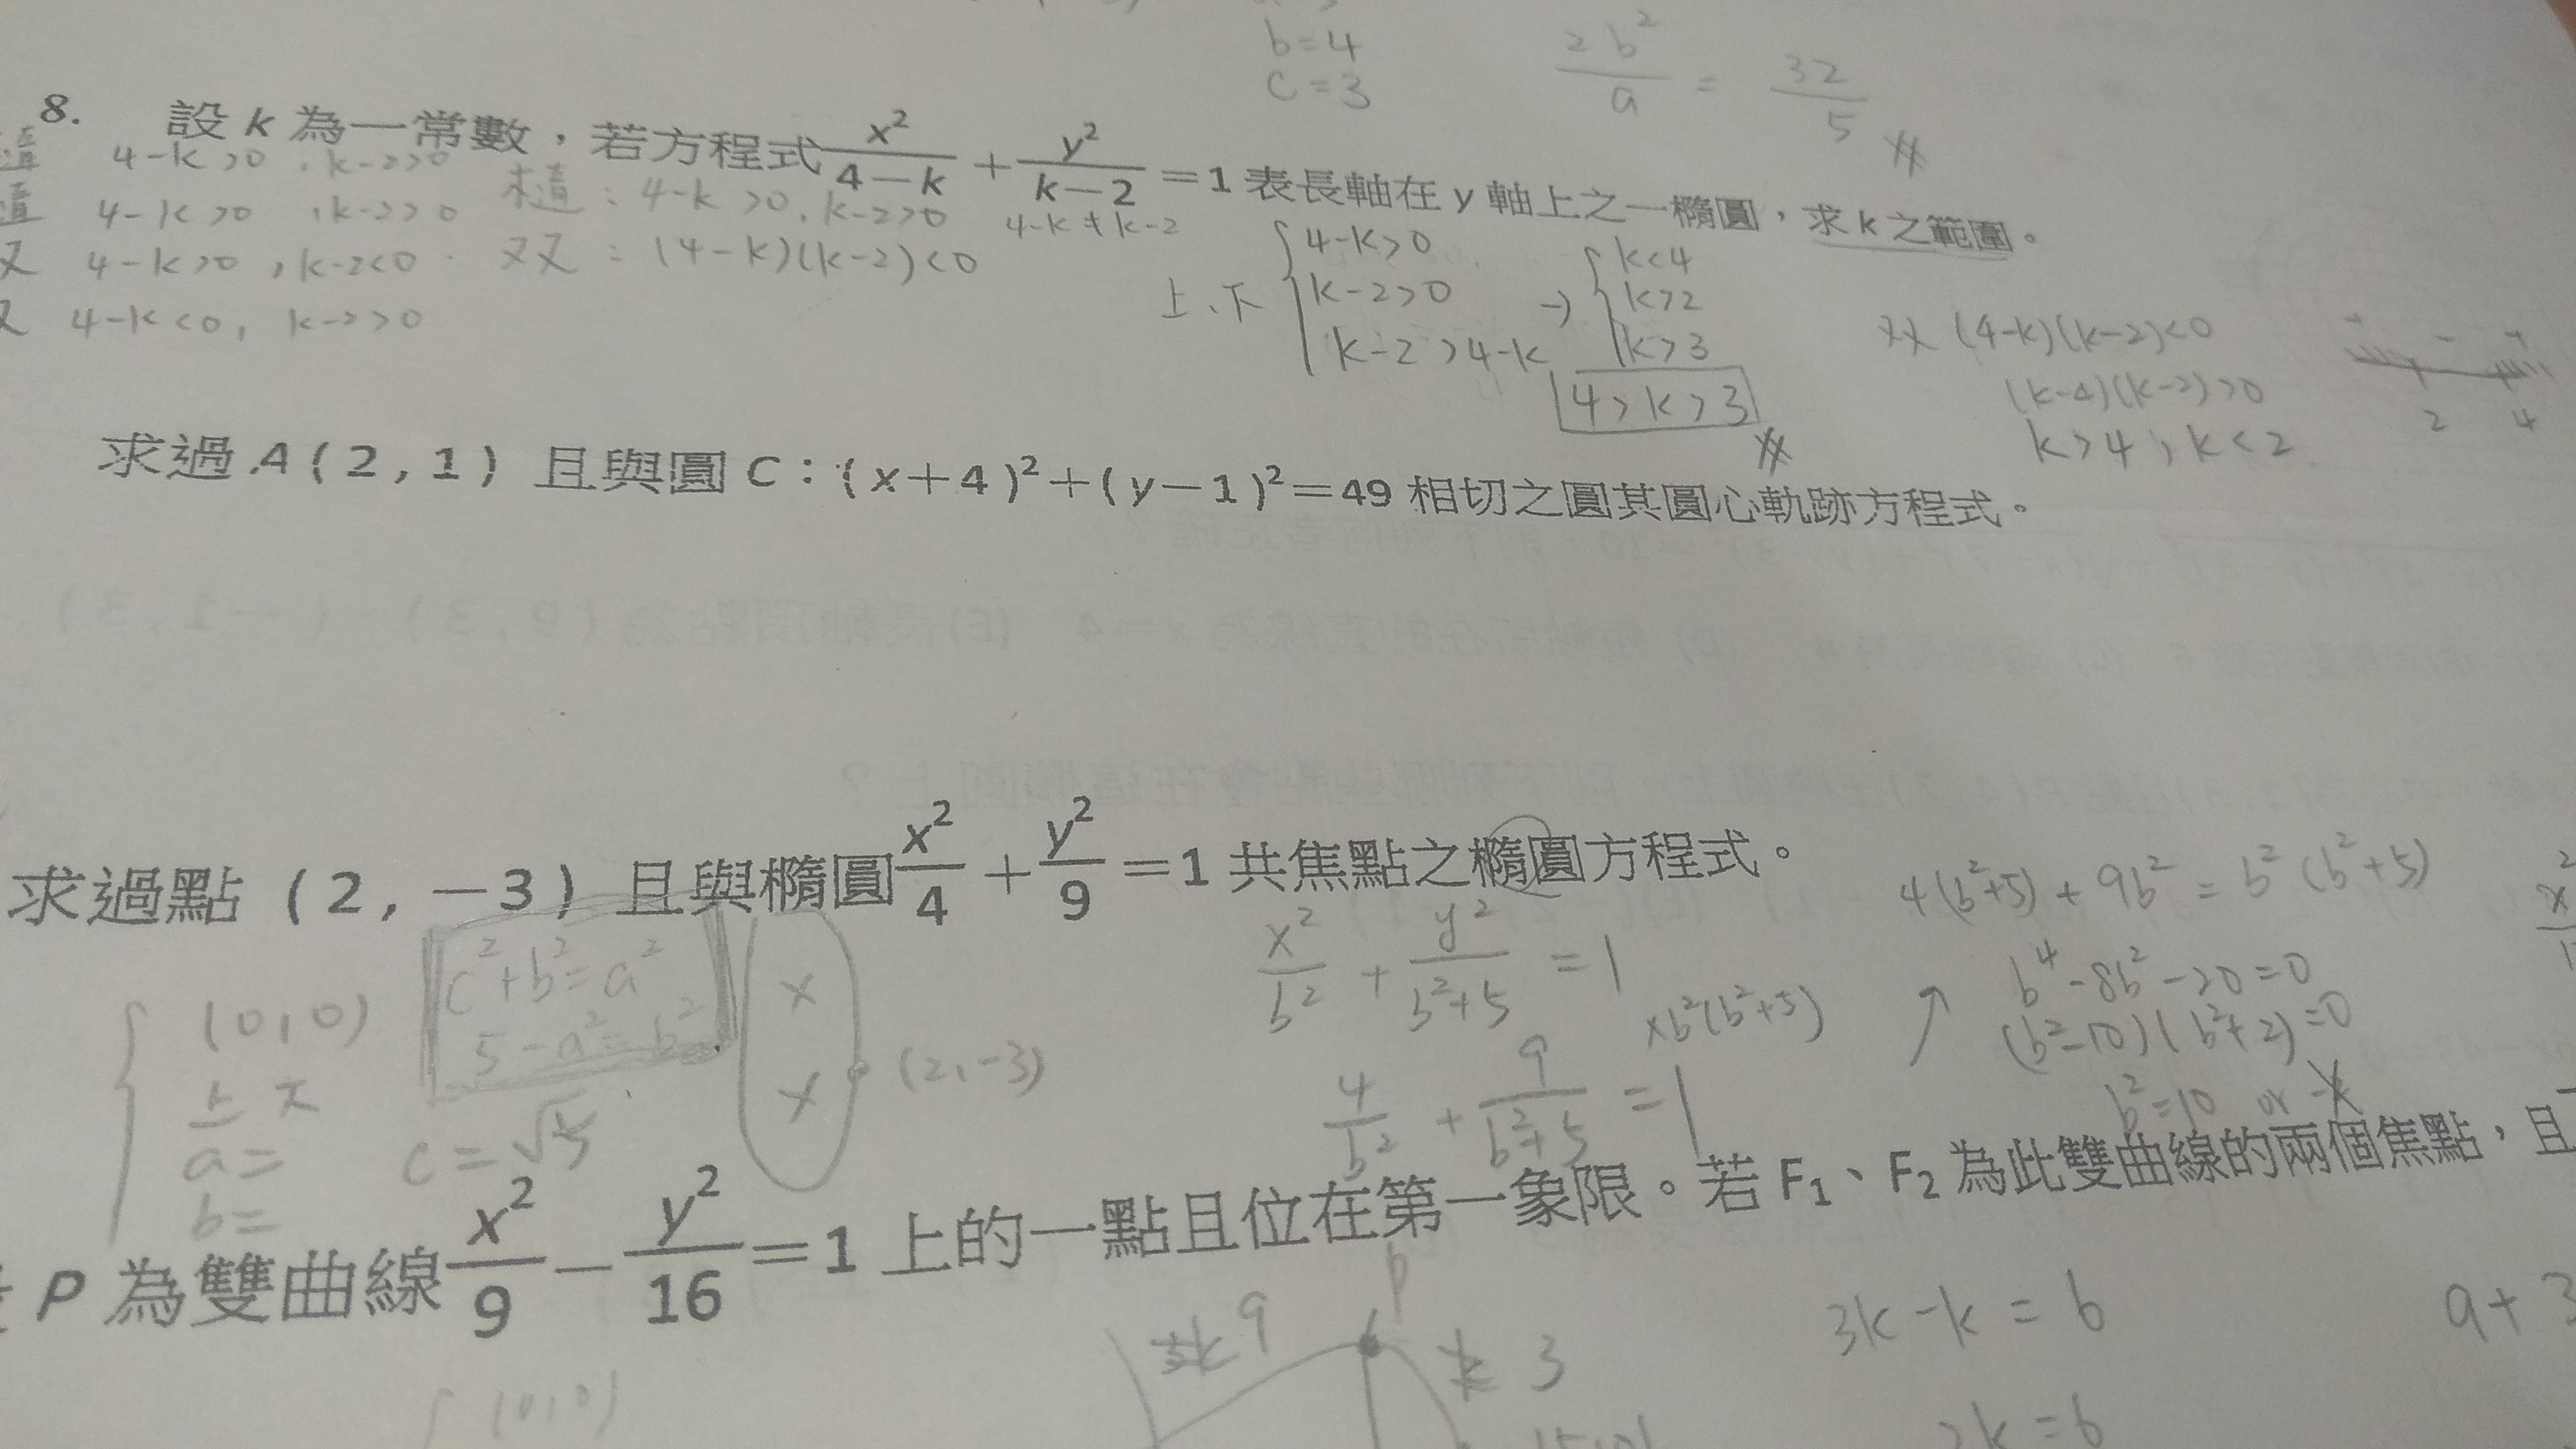 b=4
c=3
2b²/a = 32/5
8. 設 k 為一常數，若方程式 x²/(4−k) + y²/(k−2) =1 表長軸在 y 軸上之一橢圓，求 k 之範圍。
4-k>0 , k-2>0
4-k>0 , k-2>0
4-k>0 , k-2<0
4-k<0, k-2>0
橢: 4-k>0, k-2>0
4-k≠k-2
双 : (4-k)(k-2)<0
上、下 { 4-k>0
k-2>0
k-2>4-k
→ { k<4
k>2
k>3
4>k>3
双 (4-k)(k-2)<0
(k-4)(k-2)>0
k>4, k<2
+ - +
2 4
求過 A(2,1) 且與圓 C：(x+4)²+(y−1)²=49 相切之圓其圓心軌跡方程式。
求過點 (2,−3) 且與橢圓 x²/4 + y²/9 =1 共焦點之橢圓方程式。
(0,0)
a=
b=
c²+b²=a²
5-a²=b²
c=√5
x
x
(2,-3)
x²/b² + y²/(b²+5) = 1
×b²(b²+5)
4/b² + 9/(b²+5) = 1
4(b²+5)+9b² = b²(b²+5)
b⁴-8b²-20=0
(b²-10)(b²+2)=0
b²=10 or
P 為雙曲線 x²/9 − y²/16 =1 上的一點且位在第一象限。若 F₁、F₂ 為此雙曲線的兩個焦點，且
(0,0)
3k 9
P
k 3
3k-k=6
2k=6
9+3